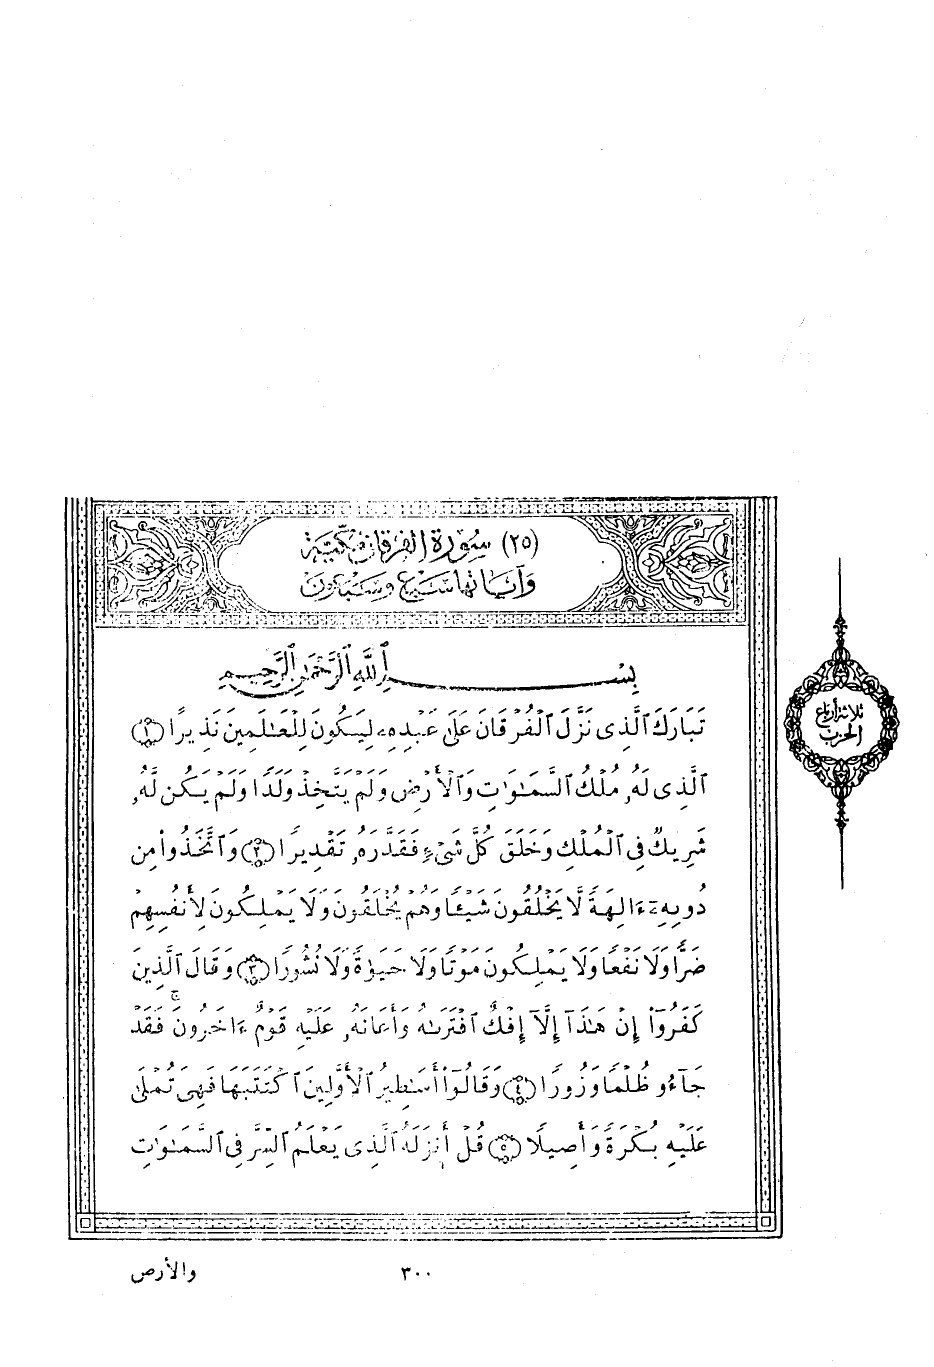 (٢٥) سُورَة الفُرقان مَكِّيَّة
وَآيَاتُهَا سَبْعٌ وَسَبْعُونَ
بِسْمِ ٱللَّهِ ٱلرَّحْمَٰنِ ٱلرَّحِيمِ
تَبَارَكَ ٱلَّذِى نَزَّلَ ٱلْفُرْقَانَ عَلَىٰ عَبْدِهِۦ لِيَكُونَ لِلْعَٰلَمِينَ نَذِيرًا (١)
ٱلَّذِى لَهُۥ مُلْكُ ٱلسَّمَٰوَٰتِ وَٱلْأَرْضِ وَلَمْ يَتَّخِذْ وَلَدًا وَلَمْ يَكُن لَّهُۥ
شَرِيكٌ فِى ٱلْمُلْكِ وَخَلَقَ كُلَّ شَىْءٍ فَقَدَّرَهُۥ تَقْدِيرًا (٢) وَٱتَّخَذُوا۟ مِن
دُونِهِۦٓ ءَالِهَةً لَّا يَخْلُقُونَ شَيْـًٔا وَهُمْ يُخْلَقُونَ وَلَا يَمْلِكُونَ لِأَنفُسِهِمْ
ضَرًّا وَلَا نَفْعًا وَلَا يَمْلِكُونَ مَوْتًا وَلَا حَيَوٰةً وَلَا نُشُورًا (٣) وَقَالَ ٱلَّذِينَ
كَفَرُوٓا۟ إِنْ هَٰذَآ إِلَّآ إِفْكٌ ٱفْتَرَىٰهُ وَأَعَانَهُۥ عَلَيْهِ قَوْمٌ ءَاخَرُونَ ۖ فَقَدْ
جَآءُو ظُلْمًا وَزُورًا (٤) وَقَالُوٓا۟ أَسَٰطِيرُ ٱلْأَوَّلِينَ ٱكْتَتَبَهَا فَهِىَ تُمْلَىٰ
عَلَيْهِ بُكْرَةً وَأَصِيلًا (٥) قُلْ أَنزَلَهُ ٱلَّذِى يَعْلَمُ ٱلسِّرَّ فِى ٱلسَّمَٰوَٰتِ
ثلاثة أرباع
الحزب
٣٠٠
والأرض